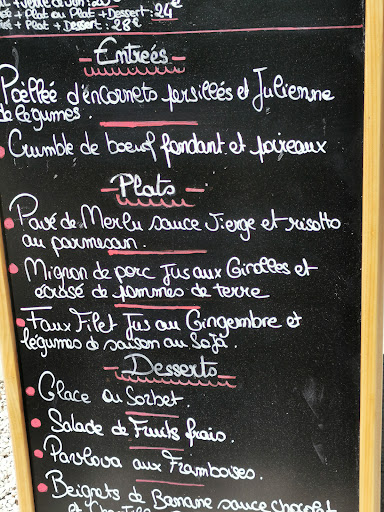 + Plat ou Plat + Dessert : 24€
+ Plat + Dessert : 28€
- Entreés -
Poëlleé d'encornets persillés et Julienne
de légumes.
Crumble de boeuf fondant et poireaux
- Plats -
Pavé de Merlu sauce vierge et risotto
au parmesan.
Mignon de porc Jus aux Girolles et
écrasé de pommes de terre
Faux Filet Jus au Gingembre et
légumes de saison au Soja.
Desserts
Glace ou Sorbet.
Salade de Fruits frais.
Pavlova aux Framboises.
Beignets de Banane sauce chocolat
et